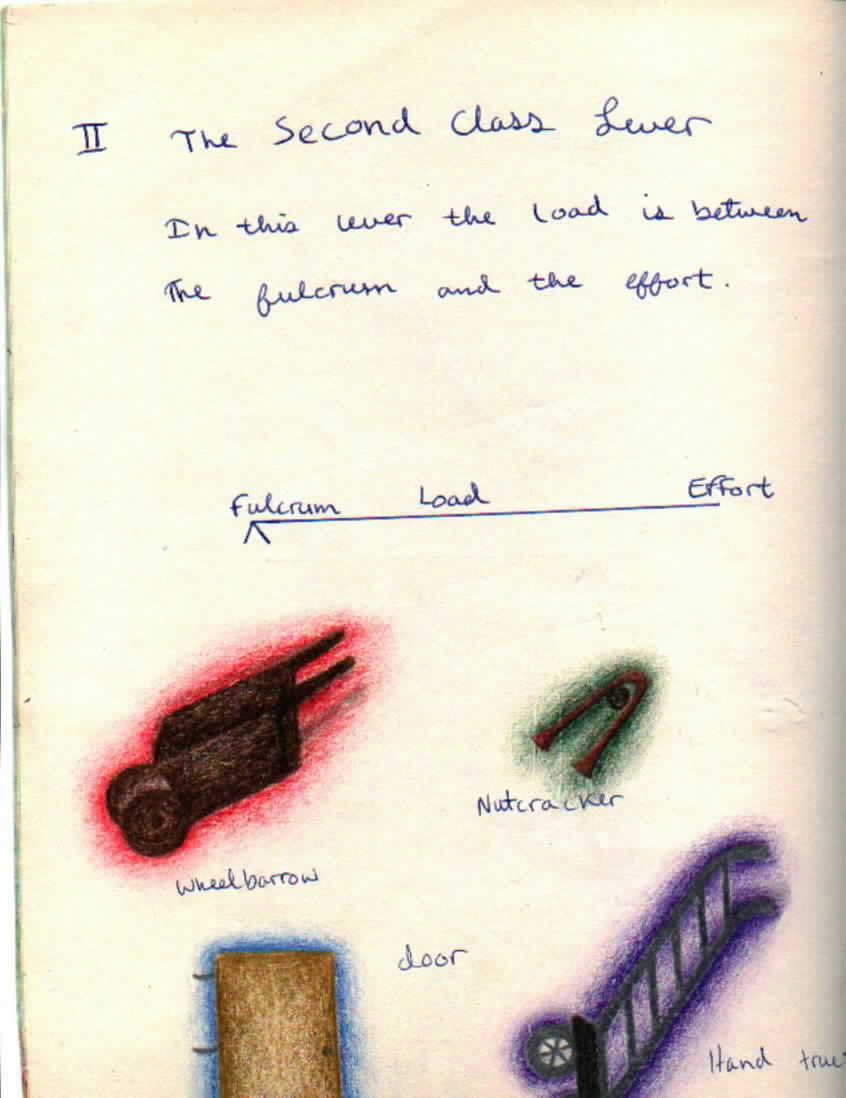 II The Second Class Lever
In this lever the load is between
The fulcrum and the effort.
Fulcrum Load Effort
Nutcracker
Wheelbarrow
door
Hand truc